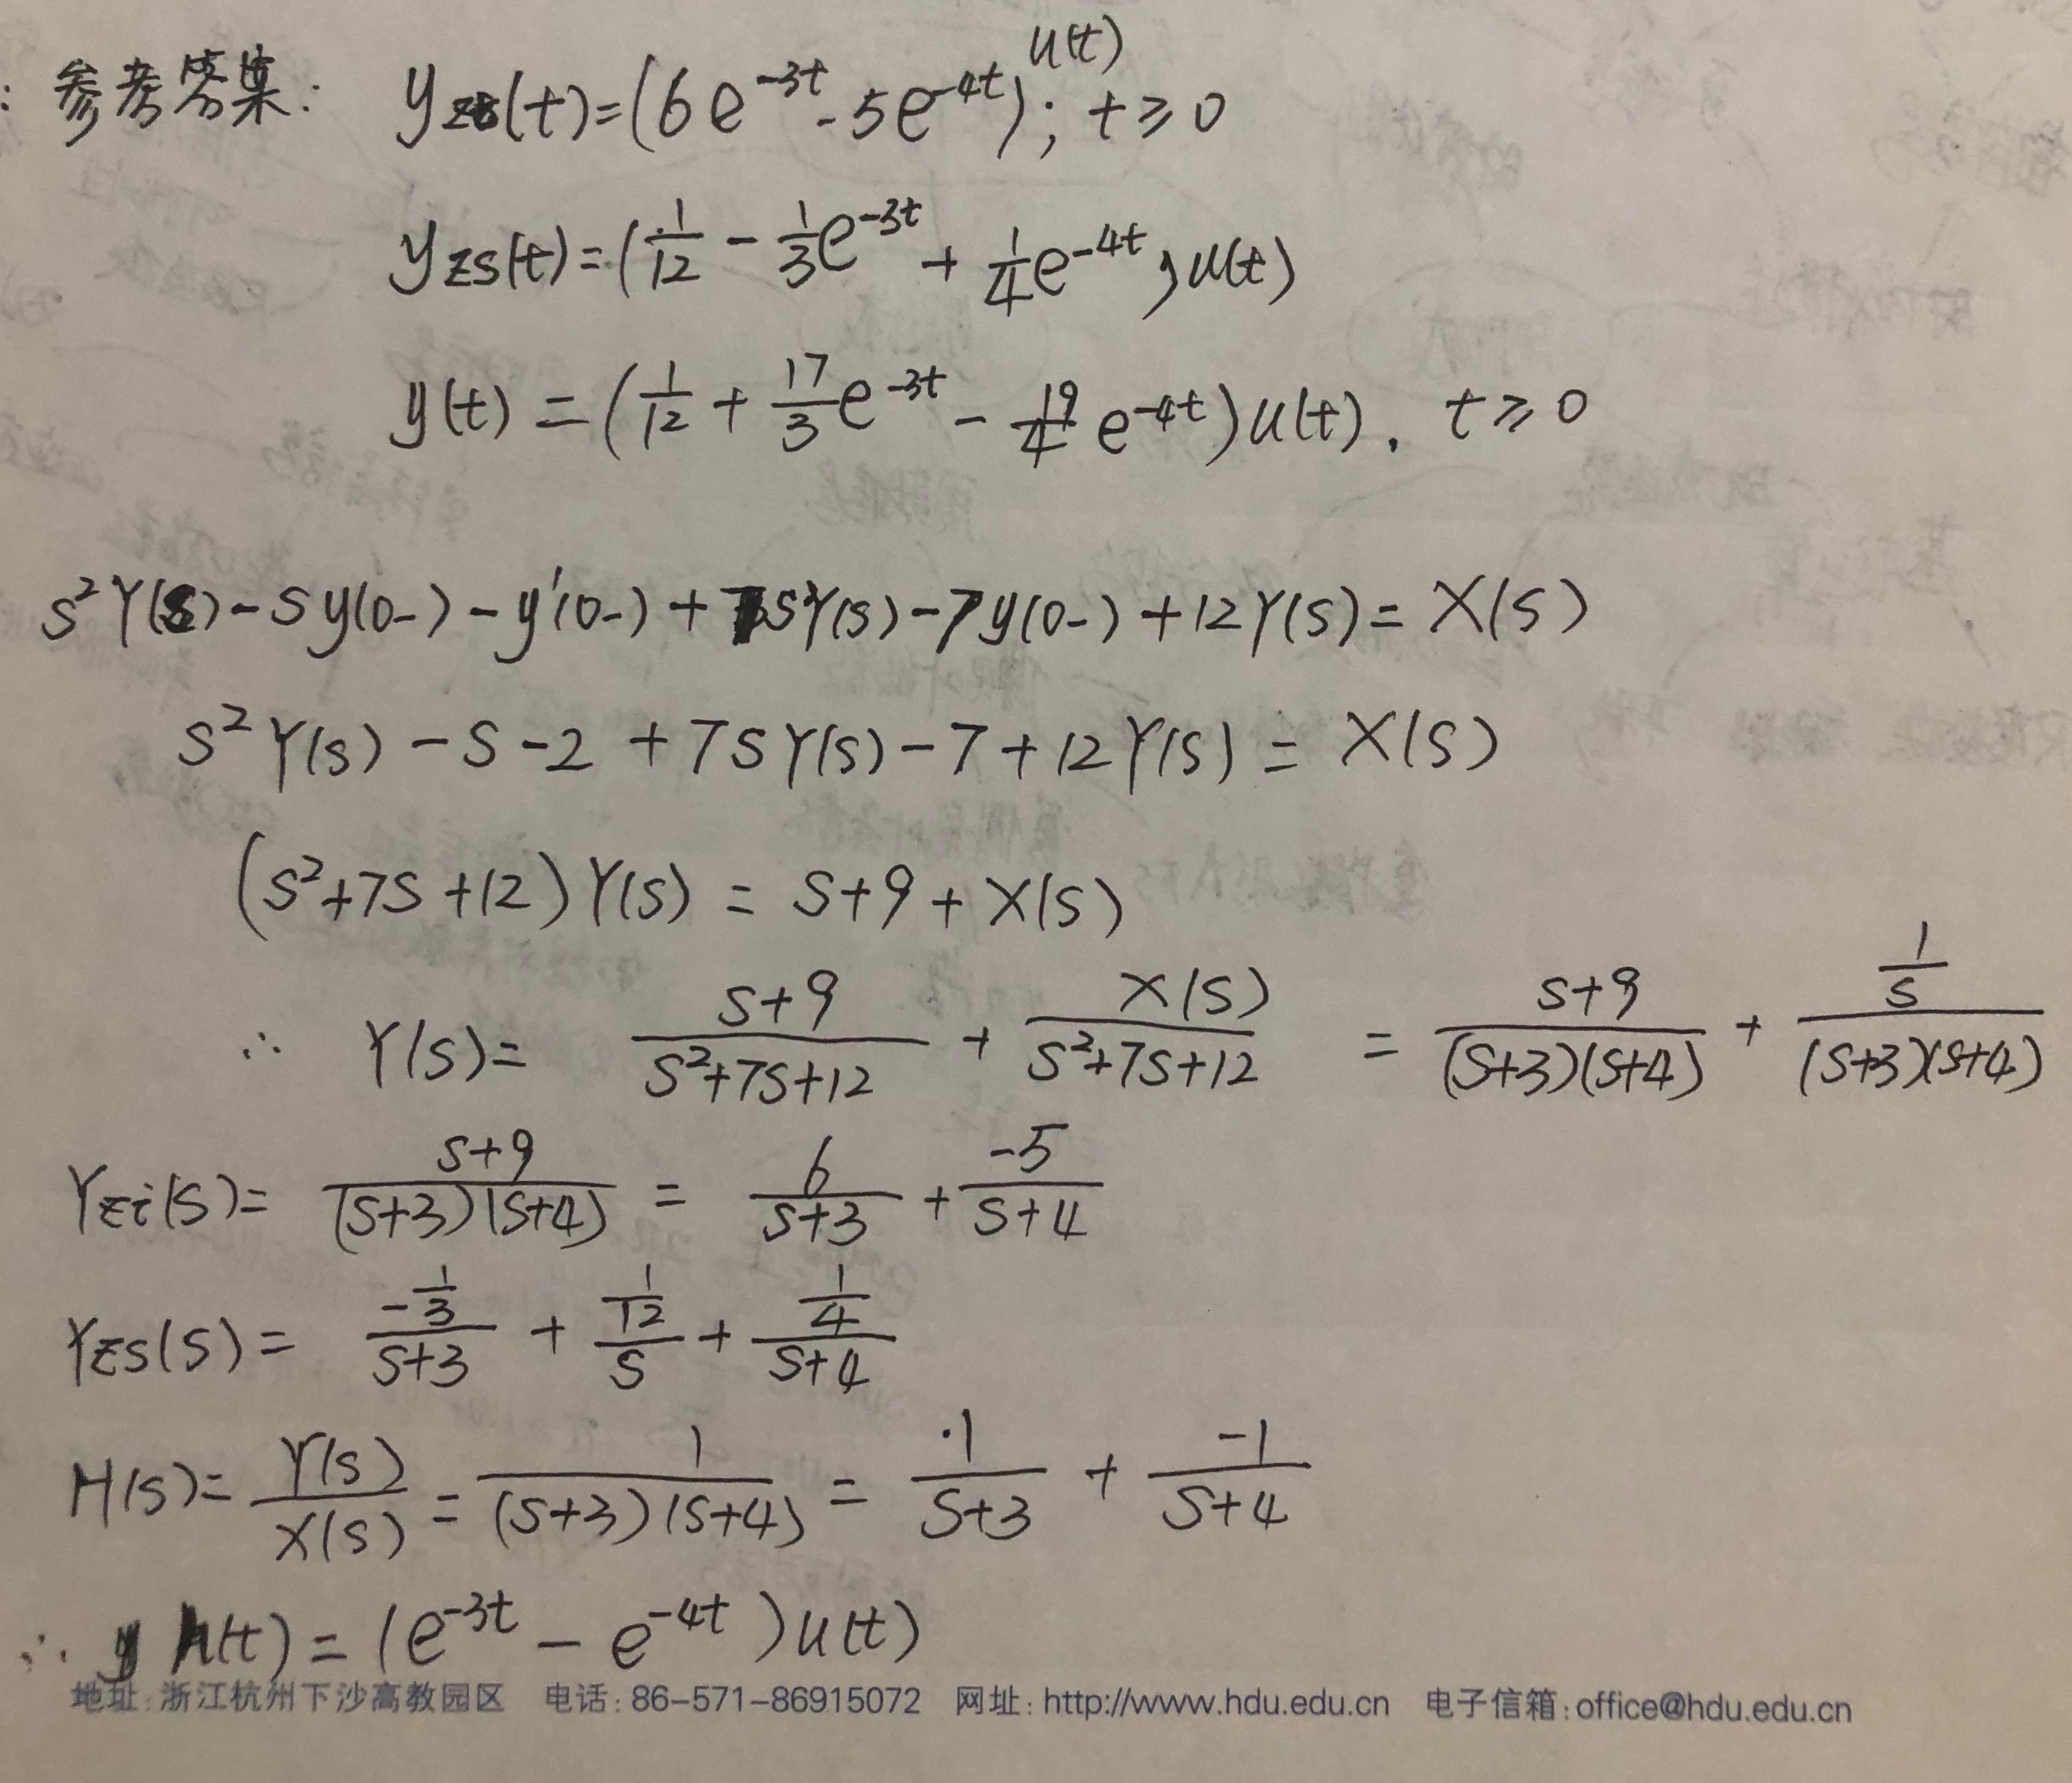 : 参考答案: yzi(t)=(6e^-3t - 5e^-4t)u(t); t≥0
yzs(t)=(1/12 - 1/3 e^-3t + 1/4 e^-4t)u(t)
y(t) = (1/12 + 17/3 e^-3t - 19/4 e^-4t)u(t), t≥0
s²Y(s)-sy(0-)-y'(0-)+7sY(s)-7y(0-)+12Y(s)=X(s)
s²Y(s)-s-2+7sY(s)-7+12Y(s)=X(s)
(s²+7s+12)Y(s)=s+9+X(s)
∴ Y(s)= (s+9)/(s²+7s+12) + X(s)/(s²+7s+12) = (s+9)/((s+3)(s+4)) + (1/s)/((s+3)(s+4))
Yzi(s)= (s+9)/((s+3)(s+4)) = 6/(s+3) + -5/(s+4)
Yzs(s)= (-1/3)/(s+3) + (1/12)/s + (1/4)/(s+4)
H(s)= Y(s)/X(s) = 1/((s+3)(s+4)) = 1/(s+3) + -1/(s+4)
∴ h(t)=(e^-3t - e^-4t)u(t)
地址:浙江杭州下沙高教园区 电话:86-571-86915072 网址:http://www.hdu.edu.cn 电子信箱:office@hdu.edu.cn